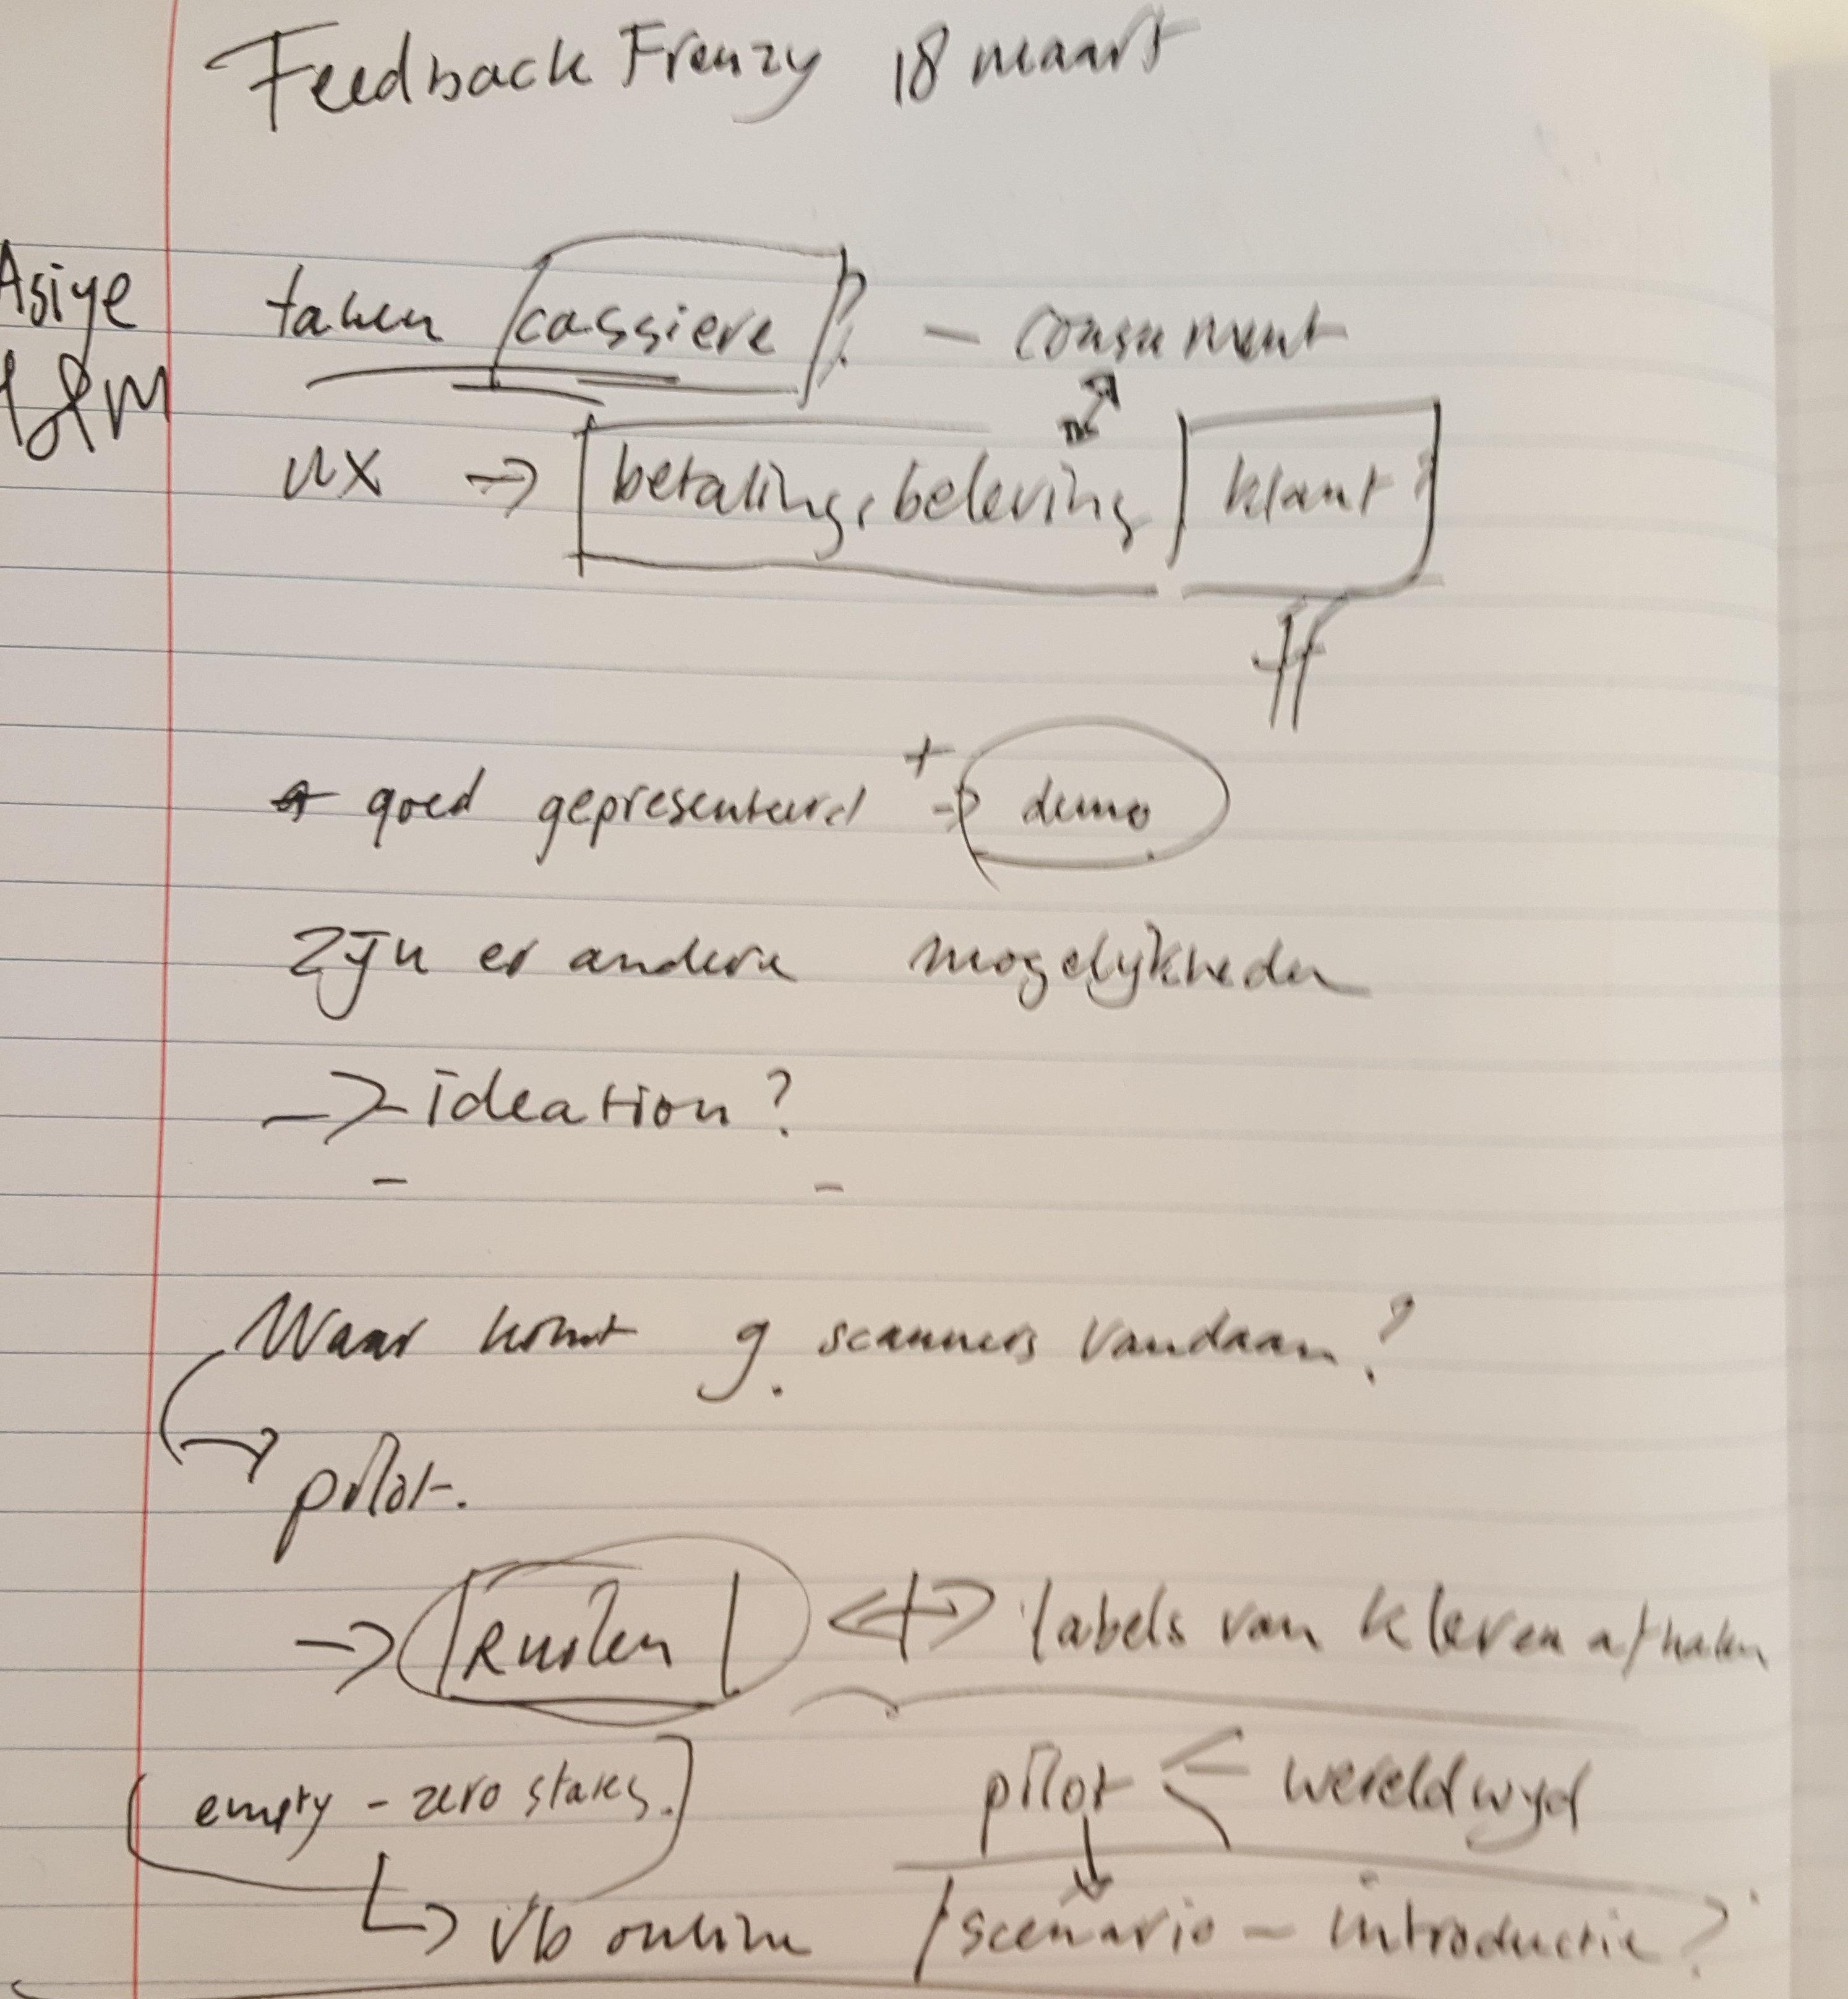 Feedback Frenzy 18 maart
Asiye
H&M
taken cassiere ? - consument
UX → betalings, beleving klant ?
goed gepresenteerd + → demo
Zijn er andere mogelijkheden
→ ideation?
- -
Waar komt g. scanners vandaan?
→ pilot.
→ Ruilen ↔ labels van kleren afhalen
empty - zero states.
pilot ← wereldwijd
↳ vb online
scenario - introductie?